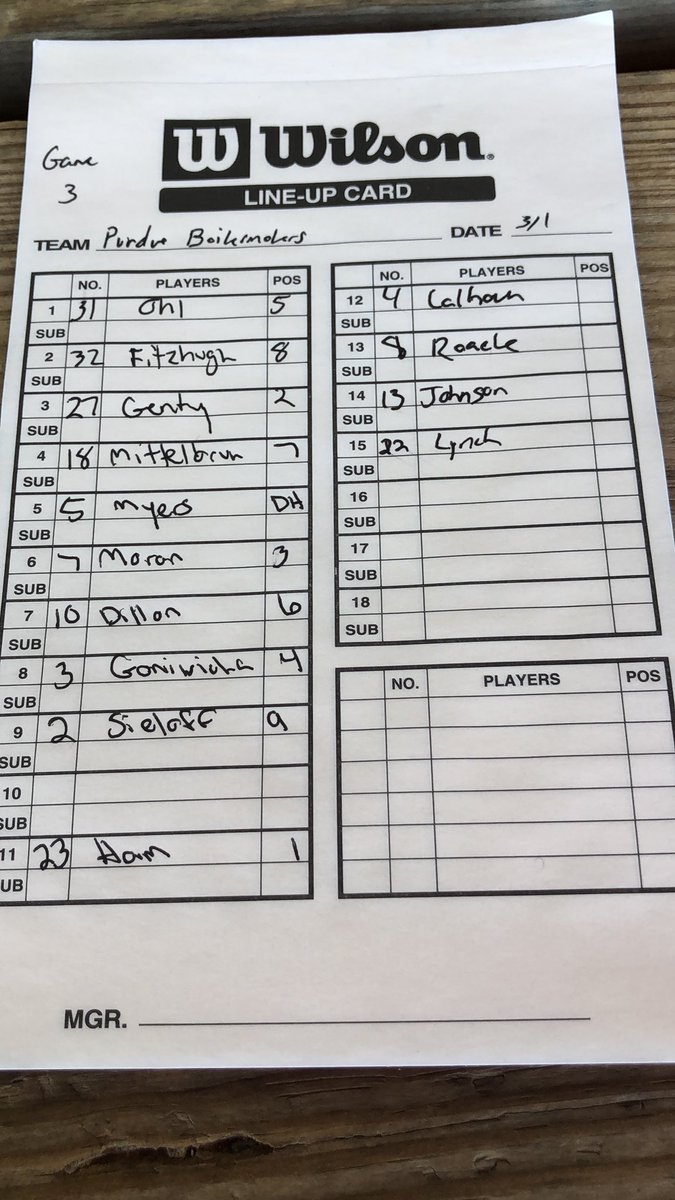 Game
3
W Wilson®
LINE-UP CARD
TEAM Purdue Boilermakers DATE 3/1
NO. PLAYERS POS
1 31 Ohl 5
SUB
2 32 Fitzhugh 8
SUB
3 27 Genty 2
SUB
4 18 Mittelbrun 7
SUB
5 5 Myers DH
SUB
6 7 Moran 3
SUB
7 10 Dillon 6
SUB
8 3 4
SUB
9 2 Sieloff 9
SUB
10
SUB
11 23 1
UB
NO. PLAYERS POS
12 4 Calhoun
SUB
13 8 Roache
SUB
14 13 Johnson
SUB
15 22 Lynch
SUB
16
SUB
17
SUB
18
SUB
NO. PLAYERS POS
MGR.